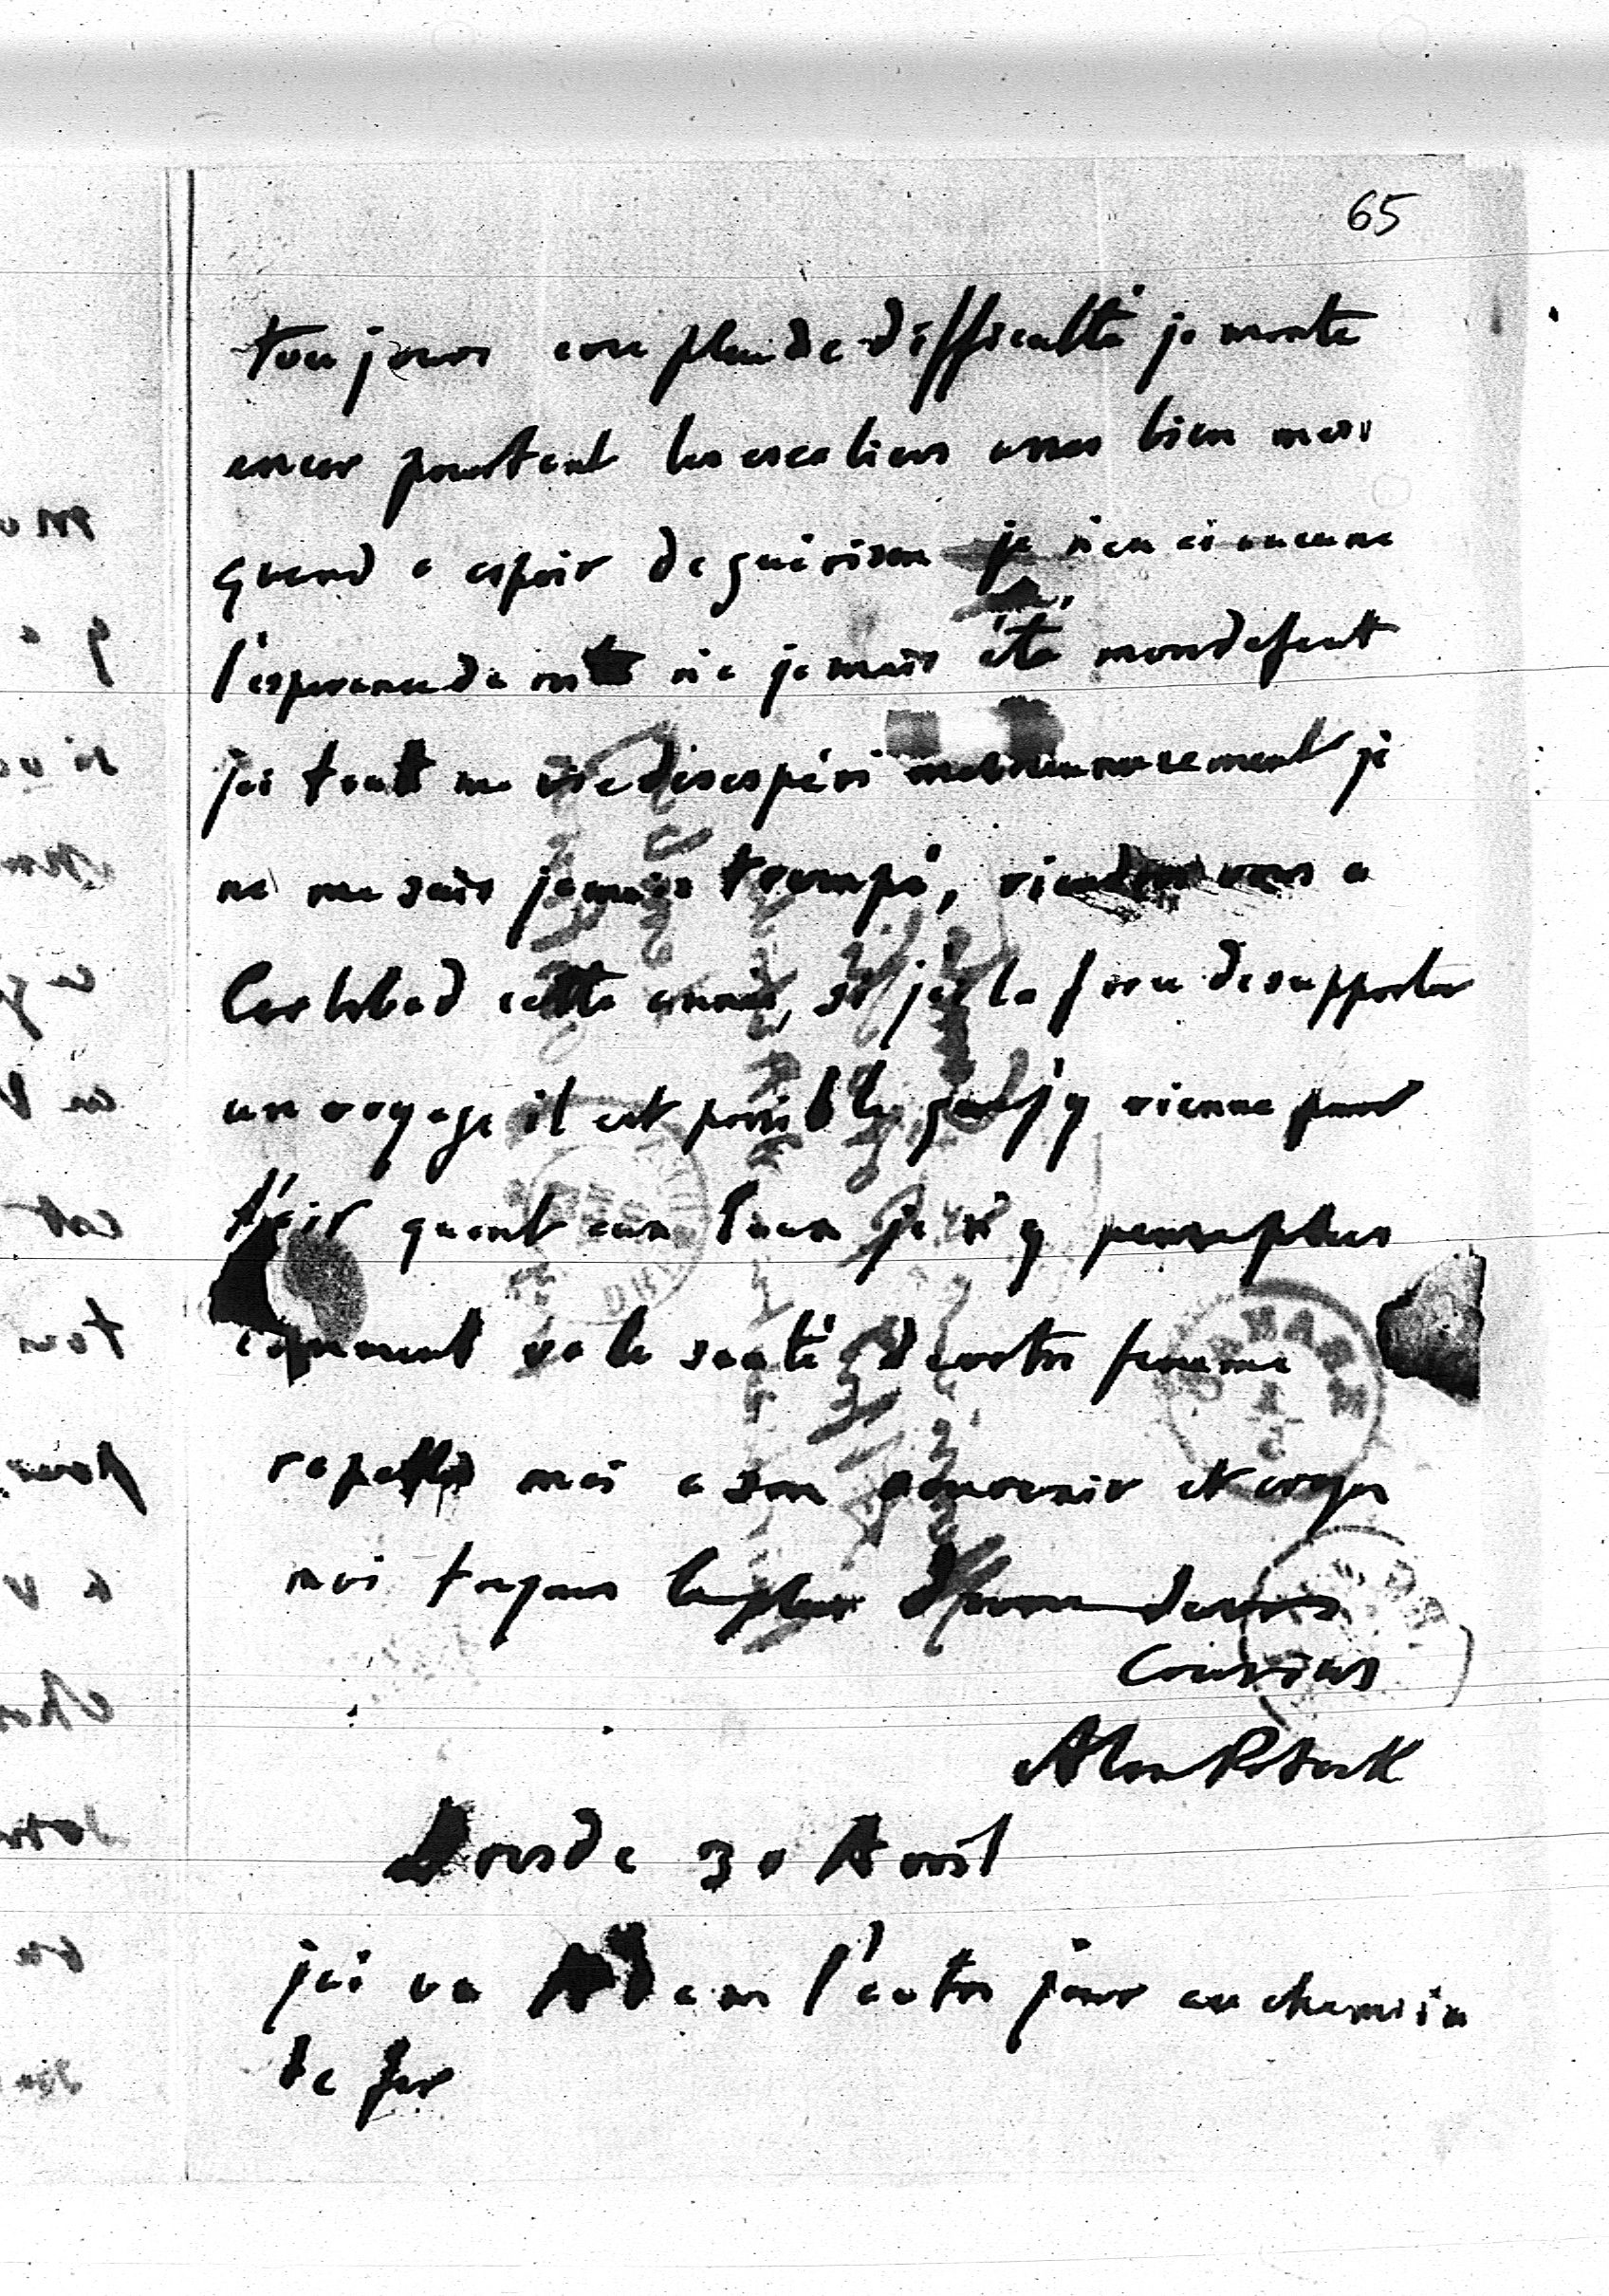 65
toujours avec plus de difficulté je monte
encor pourtant les escaliers asses bien mais
quand a espoir de guérison je n'en ai aucune
l'esperance de reste n'a jamais été mon defaut
jai toute ma vie desespéré malheureusement je
ne me suis jamais trompé, viendres vous a
Carlsbad cette année, si jai la force de supporter
un voyage il est possible que j'y vienne pour
l'air quant aux eaux je n'y pense plus
comment va la santé de votre femme
rapellés moi a son souvenir et croyes
moi toujours le plus devoué de vos
Cousins
Alex Potocki
Dresde 30 Avril
jai vu Adam l'autre jour au chemin
de fer